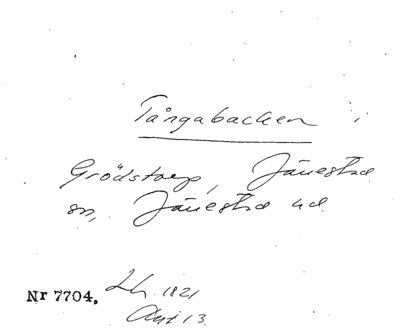 Tångabacken i
Grödstorp, Jänestad
sn, Jänestad hd
Nr 7704. Lh. 1821
Akt 13